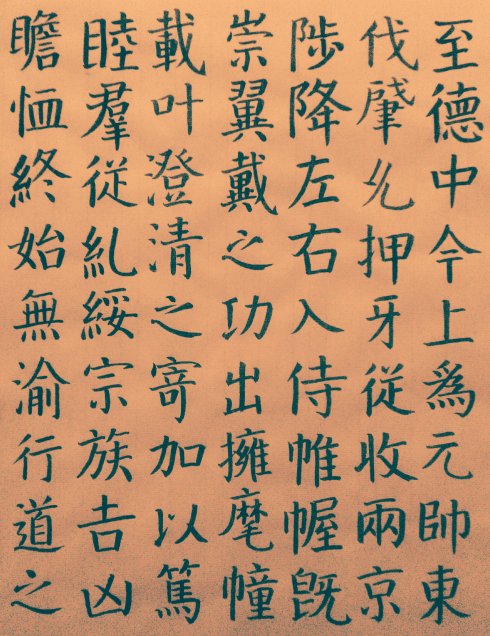 至德中今上爲元帥東
伐肈允押牙従收兩京
陟降左右入侍帷幄既
崇翼戴之功出擁麾幢
載叶澄清之寄加以篤
睦羣従糺綏宗族吉凶
瞻恤終始無渝行道之